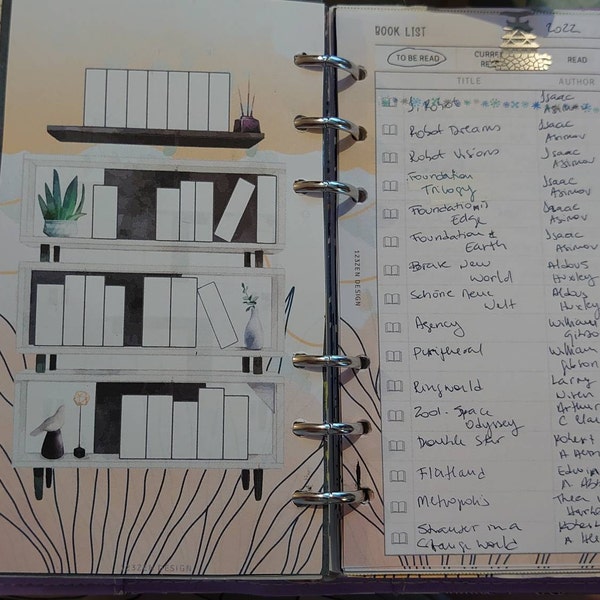 BOOK LIST
2022
TO BE READ
CURRE
RE
READ
TITLE
AUTHOR
I, Robot
Isaac
Asimov
Robot Dreams
Isaac
Asimov
Robot Visions
Isaac
Asimov
Foundation
Trilogy
Isaac
Asimov
Foundation's
Edge
Isaac
Asimov
Foundation &
Earth
Isaac
Asimov
Brave New
World
Aldous
Huxley
Schöne Neue
Welt
Aldous
Huxley
Agency
William
Gibso
Peripheral
William
Gibson
Ringworld
Larry
Niven
2001 - Space
Odyssey
Arthur
C Cla
Double Star
Robert
A
Flatland
Edwin
A. Ab
Metropolis
Thea v
Harbo
Stranger in a
Strange World
Robert
A He
123ZEN DESIGN
123ZEN DESIGN